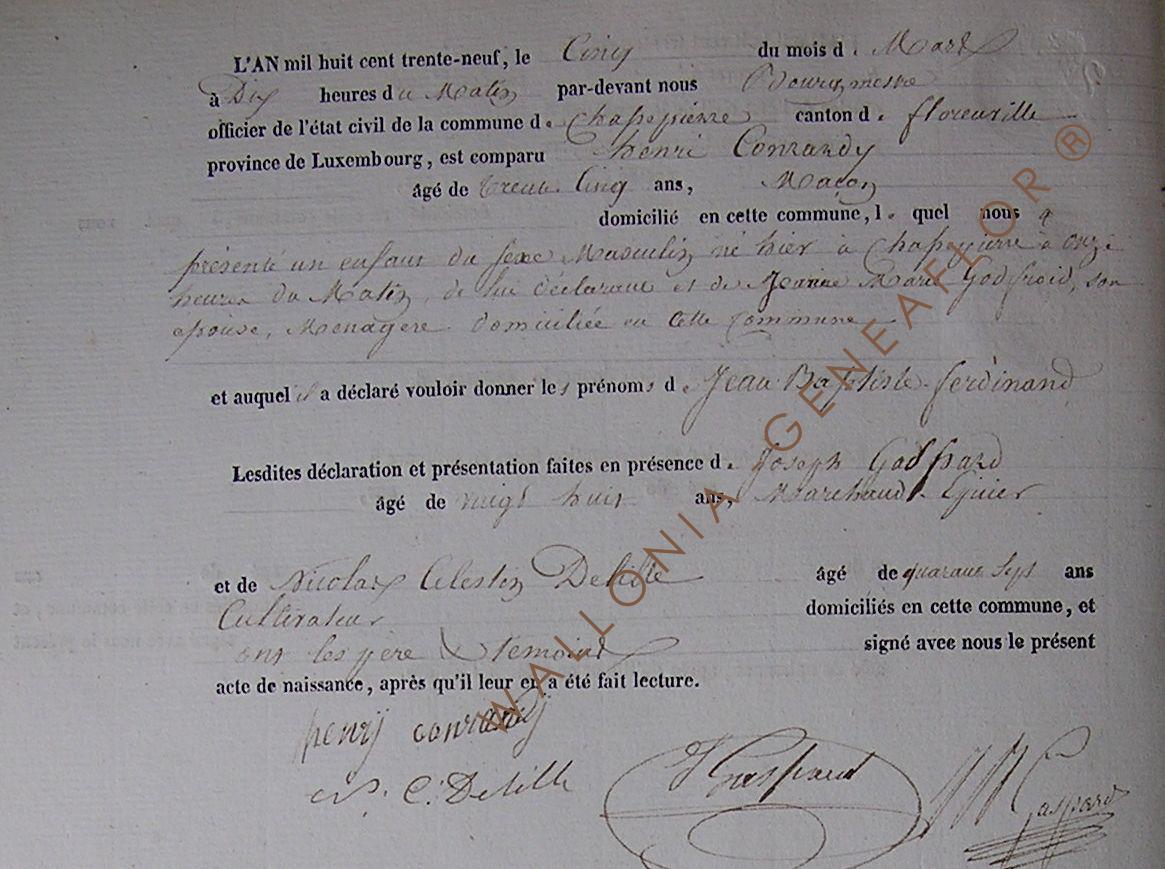 L'AN mil huit cent trente-neuf, le Cinq du mois d. Mars
à Dix heures du Matin par-devant nous Bourgmestre
officier de l'état civil de la commune d. Chapepierre canton d. florenville
province de Luxembourg, est comparu henri Conrardy
âgé de trente Cinq ans, Maçon
domicilié en cette commune, l. quel nous a
présenté un enfant du sexe Masculin né hier à Chapepierre à onze
heures du Matin, de lui déclarant et de Jeanne Marie Godfroid, son
epouse, Menagere domiciliée en Cette Commune
et auquel il a déclaré vouloir donner les prénoms d. Jean Baptiste ferdinand
Lesdites déclaration et présentation faites en présence d. Joseph Gaspard
âgé de vingt huit ans, Marchand Epicier
et de Nicolas Celestin Delille âgé de quarante Sept ans
Cultivateur domiciliés en cette commune, et
ont les père & temoins signé avec nous le présent
acte de naissance, après qu'il leur en a été fait lecture.
henrÿ conrardÿ
N. C. Delille
J Gaspard
Gaspard
WALLONIA GENEAFLOR ®